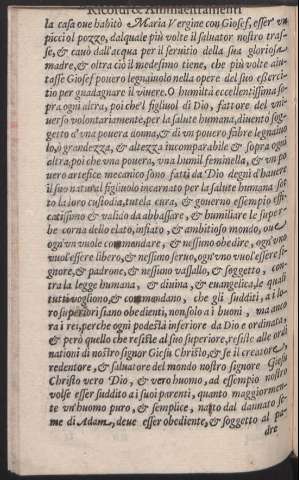 Ricordi & Ammaestramenti
la casa oue habitò Maria Vergine con Giosef, esser vn
picciol pozzo, dalquale più volte il saluator nostro tras-
se, & cauò dall'acqua per il seruitio della sua gloriosa
madre, & oltra ciò il medesimo tiene, che più volte aiu-
tasse Giosef pouero legnaiuolo nella opere del suo esserci-
tio per guadagnare il viuere. O humiltà eccellentissima so-
pra ogni altra, poi che'l figliuol di Dio, fattore del vni-
uerso volontariamente, per la salute humana, diuentò sog-
getto d'vna pouera donna, & di vn pouero fabre legnaiuo
lo, ò grandezza, & altezza incomparabile & sopra ogni
altra, poi che vna pouera, vna humil feminella, & vn po
uero artefice mecanico sono fatti da Dio degni d'hauere
il suo natural figliuolo incarnato per la salute humana sot
to la loro custodia, tutela cura, & gouerno essempio effi-
catissimo & valido da abbassare, & humiliare le super-
be corna dello elato, infiato, & ambitioso mondo, oue
ogn'vn vuole commandare, & nessuno obedire, ogn'vno
vuol'essere libero, & nessuno seruo, ogn'vno vuol'essere si-
gnore, & padrone, & nessuno vassallo, & soggetto, con-
tra la legge humana, & diuina, & euangelica, le quali
tutti vogliono, & commandano, che gli sudditi, a i lo-
ro superiori siano obedienti, non solo a i buoni, ma anco
ra i rei, perche ogni podestà inferiore da Dio e ordinata,
& però quello che resiste al suo superiore, resiste alle ordi
nationi di nostro signor Giesu Christo, & se il creatore,
redentore, & saluatore del mondo nostro signore Giesu
Christo vero Dio, & vero huomo, ad essempio nostro
volse esser suddito a i suoi parenti, quanto maggiormen-
te vn'huomo puro, & semplice, nato dal dannato se-
me di Adam, deue esser obediente, & soggetto al pa-
dre